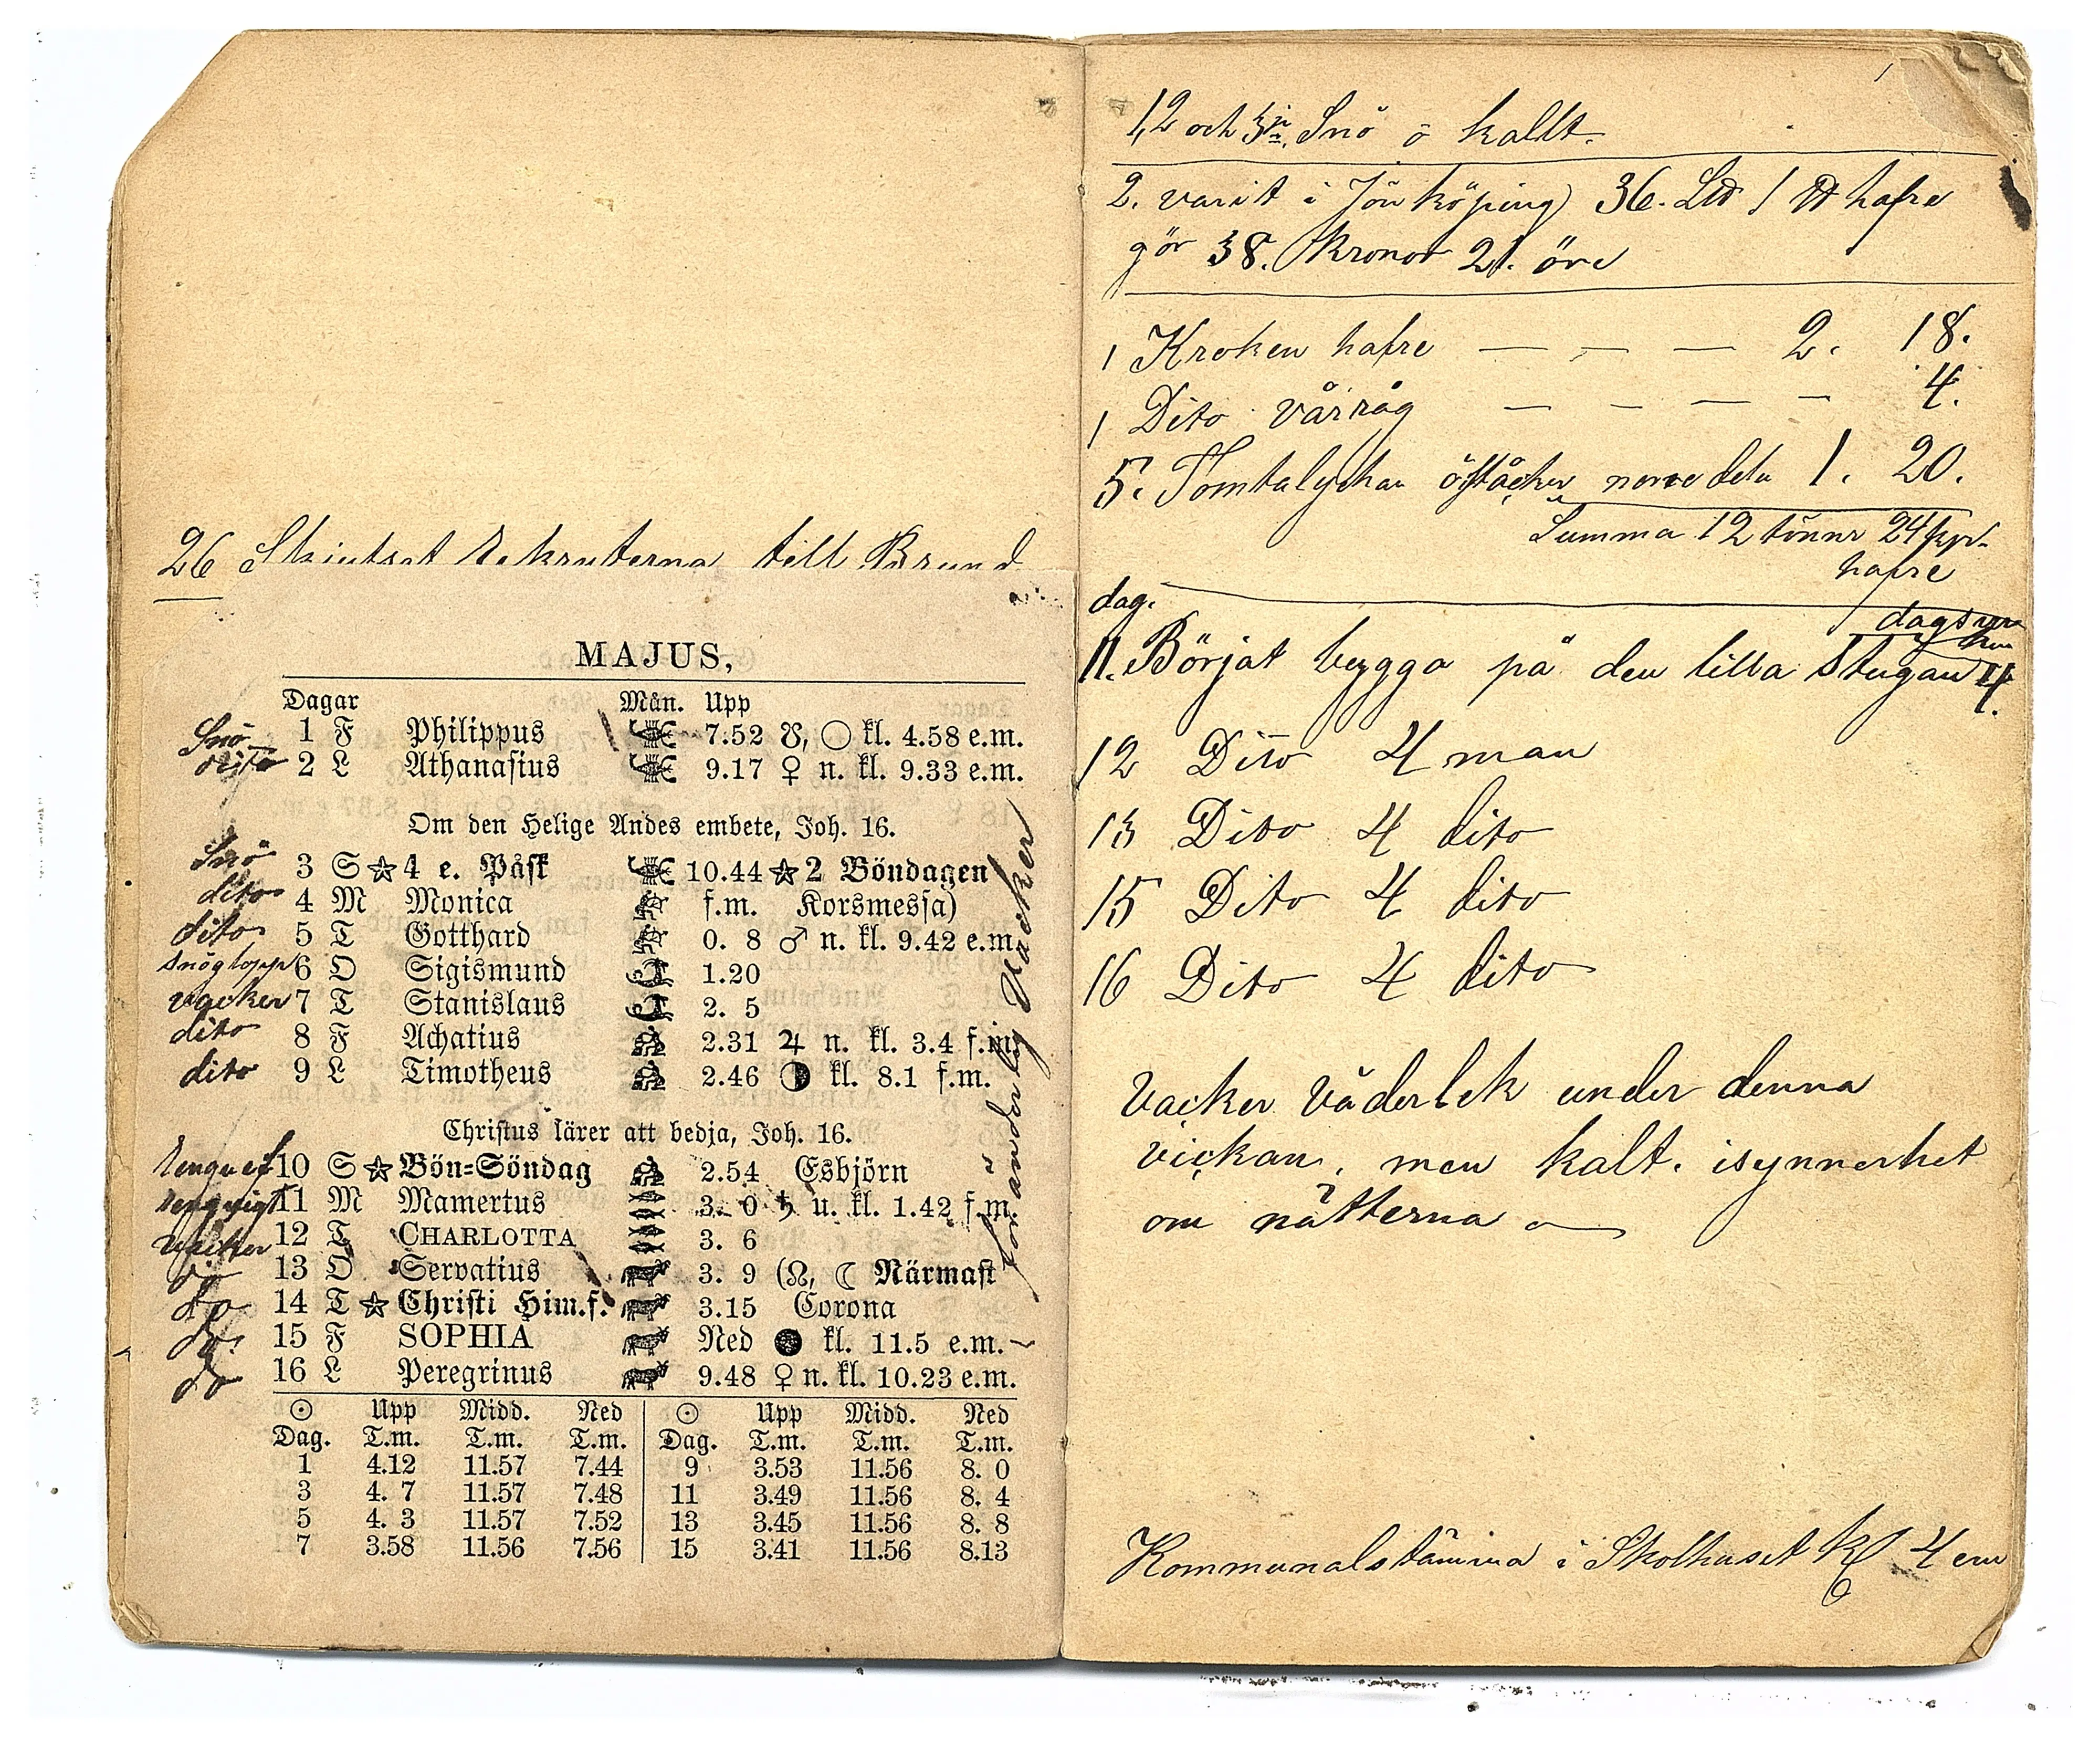 26 Skjutsat Rekruterna till Brund
MAJUS,
Dagar Mån. Upp
Snö 1 F Philippus 7.52 ☋, ○ kl. 4.58 e.m.
dito 2 L Athanasius 9.17 ♀ n. kl. 9.33 e.m.
Om den Helige Andes embete, Joh. 16.
Snö 3 S ☆ 4 e. Påsk 10.44 ☆ 2 Böndagen
dito 4 M Monica f.m. Korsmessa)
dito 5 T Gotthard 0. 8 ♂ n. kl. 9.42 e.m.
snöglopp 6 O Sigismund 1.20
vacker 7 T Stanislaus 2. 5
dito 8 F Achatius 2.31 ♃ n. kl. 3.4 f.m.
dito 9 L Timotheus 2.46 ◑ kl. 8.1 f.m.
Christus lärer att bedja, Joh. 16.
10 S ☆ Bön=Söndag 2.54 Esbjörn
11 M Mamertus 3. 0 ♄ u. kl. 1.42 f.m.
Vacker 12 T CHARLOTTA 3. 6
do 13 O Servatius 3. 9 (☊, ☾ Närmast
do 14 T ☆ Christi Him.f. 3.15 Corona
do 15 F SOPHIA Ned ● kl. 11.5 e.m.
do 16 L Peregrinus 9.48 ♀ n. kl. 10.23 e.m.
föränderlig Vacker
☉ Upp Midd. Ned ☉ Upp Midd. Ned
Dag. T.m. T.m. T.m. Dag. T.m. T.m. T.m.
1 4.12 11.57 7.44 9 3.53 11.56 8. 0
3 4. 7 11.57 7.48 11 3.49 11.56 8. 4
5 4. 3 11.57 7.52 13 3.45 11.56 8. 8
7 3.58 11.56 7.56 15 3.41 11.56 8.13
1,2 och 3je Snö o kallt.
2. varit i Jönköping 36. L℔ 1 ℔ hafre
gör 38. Kronor 21. öre
1 Kroken hafre — — — 2. 18.
1 Dito vårråg — — — — 4.
5. Tomtalyckan öståcker norre dela 1. 20.
Summa 12 tönnr 24 kpr
hafre
dag.
11. Börjat bygga på den lilla Stugan 4.
12 Dito 4 man
13 Dito 4 dito
15 Dito 4 dito
16 Dito 4 dito
Vacker väderlek under denna
vickan, men kalt. isynnerhet
om nätterna
Kommunalstämma i Skolhuset Kl 4 em